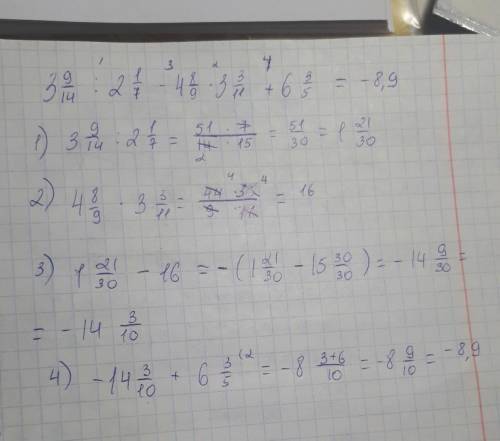 3 9/14 : 2 1/7 - 4 8/9 · 3 3/11 + 6 3/5 = -8,9
1) 3 9/14 : 2 1/7 = 51 · 7 / 14 · 15 = 51/30 = 1 21/30
2) 4 8/9 · 3 3/11 = 44 · 36 / 9 · 11 = 16
3) 1 21/30 - 16 = -(1 21/30 - 15 30/30) = -14 9/30 =
= -14 3/10
4) -14 3/10 + 6 3/5 = -8 3+6/10 = -8 9/10 = -8,9